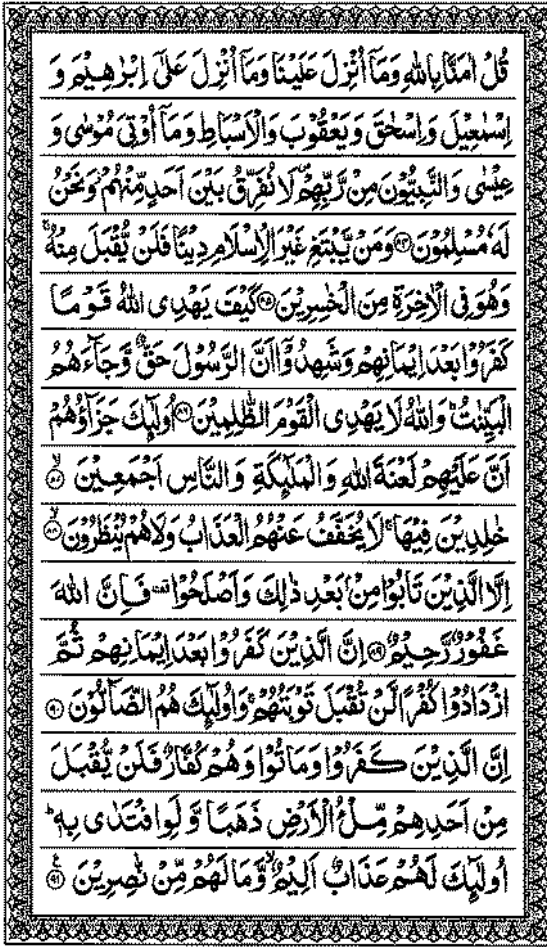 قُلْ اٰمَنَّا بِاللّٰهِ وَمَاۤ اُنْزِلَ عَلَیْنَا وَمَاۤ اُنْزِلَ عَلٰۤی اِبْرٰهِیْمَ وَ
اِسْمٰعِیْلَ وَاِسْحٰقَ وَیَعْقُوْبَ وَالْاَسْبَاطِ وَمَاۤ اُوْتِیَ مُوْسٰی وَ
عِیْسٰی وَالنَّبِیُّوْنَ مِنْ رَّبِّهِمْ ۪ لَا نُفَرِّقُ بَیْنَ اَحَدٍ مِّنْهُمْ ؗ وَنَحْنُ
لَهٗ مُسْلِمُوْنَ ﴿۸۴﴾ وَمَنْ یَّبْتَغِ غَیْرَ الْاِسْلَامِ دِیْنًا فَلَنْ یُّقْبَلَ مِنْهُ ۚ
وَهُوَ فِی الْاٰخِرَةِ مِنَ الْخٰسِرِیْنَ ﴿۸۵﴾ كَیْفَ یَهْدِی اللّٰهُ قَوْمًا
كَفَرُوْا بَعْدَ اِیْمَانِهِمْ وَشَهِدُوْۤا اَنَّ الرَّسُوْلَ حَقٌّ وَّجَآءَهُمُ
الْبَیِّنٰتُ ؕ وَاللّٰهُ لَا یَهْدِی الْقَوْمَ الظّٰلِمِیْنَ ﴿۸۶﴾ اُولٰٓئِكَ جَزَآؤُهُمْ
اَنَّ عَلَیْهِمْ لَعْنَةَ اللّٰهِ وَالْمَلٰٓئِكَةِ وَالنَّاسِ اَجْمَعِیْنَ ﴿۸۷﴾ ۙ
خٰلِدِیْنَ فِیْهَا ۚ لَا یُخَفَّفُ عَنْهُمُ الْعَذَابُ وَلَا هُمْ یُنْظَرُوْنَ ﴿۸۸﴾ ۙ
اِلَّا الَّذِیْنَ تَابُوْا مِنْ بَعْدِ ذٰلِكَ وَاَصْلَحُوْا ۫ فَاِنَّ اللّٰهَ
غَفُوْرٌ رَّحِیْمٌ ﴿۸۹﴾ اِنَّ الَّذِیْنَ كَفَرُوْا بَعْدَ اِیْمَانِهِمْ ثُمَّ
ازْدَادُوْا كُفْرًا لَّنْ تُقْبَلَ تَوْبَتُهُمْ ۚ وَاُولٰٓئِكَ هُمُ الضَّآلُّوْنَ ﴿۹۰﴾
اِنَّ الَّذِیْنَ كَفَرُوْا وَمَاتُوْا وَهُمْ كُفَّارٌ فَلَنْ یُّقْبَلَ
مِنْ اَحَدِهِمْ مِّلْءُ الْاَرْضِ ذَهَبًا وَّلَوِ افْتَدٰی بِهٖ ؕ
اُولٰٓئِكَ لَهُمْ عَذَابٌ اَلِیْمٌ ۙ وَّمَا لَهُمْ مِّنْ نّٰصِرِیْنَ ﴿۹۱﴾